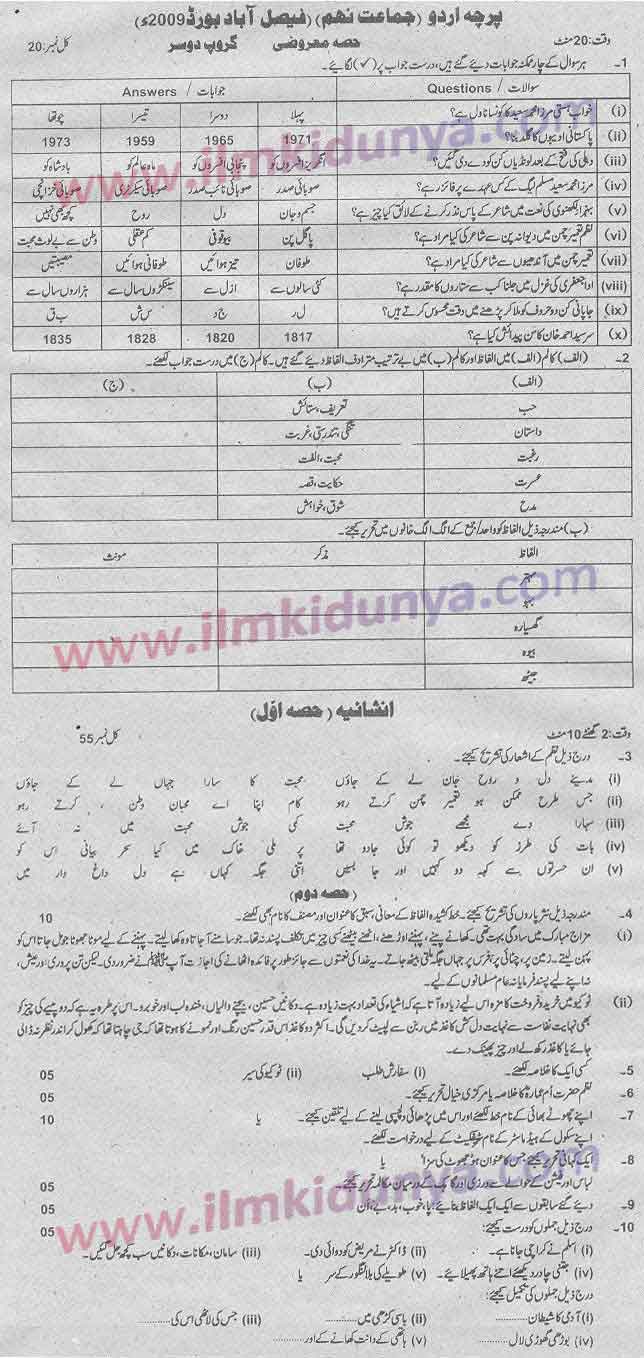 پرچہ اردو (جماعت نہم) (فیصل آباد بورڈ 2009ء)
وقت: 20 منٹ حصہ معروضی گروپ دوسر کل نمبر: 20
1۔ ہر سوال کے چار ممکنہ جوابات دیئے گئے ہیں، درست جواب پر (✓) لگائیے۔
سوالات / Questions جوابات / Answers
پہلا دوسرا تیسرا چوتھا
(i) خواب ہستی مرزا محمد سعید کا کونسا ناول ہے؟
(ii) پاکستانی ادیبوں کا گلڈ بنا؟ 1971 1965 1959 1973
(iii) دہلی کی فتح کے بعد لونڈیاں کن کو دے دی گئیں؟ انگریز افسروں کو پنجابی افسروں کو ماہ عالم کو بادشاہ کو
(iv) مرزا محمد سعید مسلم لیگ کے کس عہدے پر فائز رہے؟ صوبائی صدر صوبائی نائب صدر صوبائی سیکرٹری صوبائی خزانچی
(v) بہزاد لکھنوی کی نعت میں شاعر کے پاس نذر کرنے کے لائق کیا چیز ہے؟ جسم و جان دل روح کچھ بھی نہیں
(vi) نظم تعمیر چمن میں دیوانہ پن سے شاعر کی کیا مراد ہے؟ پاگل پن بیوقوفی کم عقلی وطن سے بے لوث محبت
(vii) تعمیر چمن میں آندھیوں سے شاعر کی کیا مراد ہے؟ طوفان تیز ہوائیں طوفانی ہوائیں مصیبتیں
(viii) ادا جعفری کی غزل میں جلنا کب سے ستاروں کا مقدر ہے؟ کئی سالوں سے ازل سے سینکڑوں سال سے ہزاروں سال سے
(ix) جاپانی کن دو حروف کو ملا کر پڑھنے میں دقت محسوس کرتے ہیں؟ ل ر ج د س ش ب ق
(x) سرسید احمد خان کا سن پیدائش کیا ہے؟ 1817 1820 1828 1835
2۔ (الف) کالم (الف) میں الفاظ اور کالم (ب) میں بے ترتیب مترادف الفاظ دیئے گئے ہیں۔ کالم (ج) میں درست جواب لکھئے۔
(الف) (ب) (ج)
حب تعریف، ستائش
داستان تنگی، تندرستی، غربت
رغبت محبت، الفت
عسرت حکایت، قصہ
مدح شوق، خواہش
(ب) مندرجہ ذیل الفاظ کو واحد/جمع کے الگ الگ خانوں میں تحریر کیجئے۔
الفاظ مذکر مونث
مہتر
بہو
گھسیارہ
بیوہ
جیٹھ
انشائیہ (حصہ اول)
وقت: 2 گھنٹے 10 منٹ کل نمبر 55
3۔ درج ذیل نظم کے اشعار کی تشریح کیجئے۔
(i) مدینے دل و روح جان لے کے جاؤں محبت کا سارا جہاں لے کے جاؤں
(ii) جس طرح ممکن ہو تعمیر چمن کرتے رہو کام اپنا اے محبان وطن، کرتے رہو
(iii) سہارا دے مجھے جوش محبت کمی جوش محبت میں نہ آئے
(iv) بات کی طرز کو دیکھو تو کوئی جادو تھا پر ملی خاک میں کیا سحر بیانی اس کو
(v) ان حسرتوں سے کہہ دو کہیں اور جا بسیں اتنی جگہ کہاں ہے دل داغ دار میں
(حصہ دوم)
4۔ مندرجہ ذیل نثر پاروں کی تشریح کیجئے۔ خط کشیدہ الفاظ کے معانی، سبق کا عنوان اور مصنف کا نام بھی لکھئے۔ 10
(i) مزاج مبارک میں سادگی بہت تھی۔ کھانے پینے، پہننے اوڑھنے، اٹھنے بیٹھنے کسی چیز میں تکلف پسند نہ تھا۔ جو سامنے آ جاتا وہ کھا لیتے۔ پہننے کے لیے موٹا جھوٹا جو مل جاتا اس کو
پہن لیتے۔ زمین پر، چٹائی پر، فرش پر جہاں جگہ ملتی بیٹھ جاتے۔ یہ خدا کی نعمتوں سے جائز طور پر فائدہ اٹھانے کی اجازت آپ ﷺ نے ضرور دی۔ لیکن تن پروری اور عیش،
نہ اپنے لیے پسند فرمایا نہ عام مسلمانوں کے لیے۔
(ii) ٹوکیو میں خرید و فروخت کا مزہ اس لیے زیادہ آتا ہے کہ اشیاء کی تعداد بہت زیادہ ہے۔ دکانیں حسین، بیچنے والیاں، خندہ لب اور خوبرو۔ اس پر طرہ یہ ہے کہ دو پیسے کی چیز کو
بھی نہایت نفاست سے نہایت دل کش کاغذ میں ربن سے لپیٹ کر دیں گی۔ اکثر وہ کاغذ اس قدر حسین رنگ اور نمونے کا ہوتا تھا کہ جی چاہتا تھا کہ کھول کر اندر نظر نہ ڈالی
جائے یا کاغذ رکھ لے اور چیز پھینک دے۔
5۔ کسی ایک کا خلاصہ لکھئے۔ (i) سفارش طلب (ii) ٹوکیو کی سیر 05
6۔ نظم حضرت ام عمارہ کا خلاصہ یا مرکزی خیال تحریر کیجئے۔ 05
7۔ اپنے چھوٹے بھائی کے نام خط لکھئے اور اس میں پڑھائی دلچسپی لینے کے لیے تلقین کیجئے۔ یا 10
اپنے سکول کے ہیڈ ماسٹر کے نام سرٹیفکیٹ کے لیے درخواست لکھئے۔
8۔ ایک کہانی تحریر کیجئے جس کا عنوان ہو جھوٹ کی سزا یا
لباس اور فیشن کے حوالے سے درزی اور گاہک کے درمیان مکالمہ تحریر کیجئے۔ 05
9۔ دیے گئے سابقوں سے ایک ایک الفاظ بنائیے: پا، خوب، بد، بے، ان 05
10۔ درج ذیل جملوں کو درست کیجئے: 05
(i) اسلم نے کراچی جانا ہے۔ (ii) ڈاکٹر نے مریض کو دوائی دی۔ (iii) سامان، مکانات، دکانیں سب کچھ جل گئیں۔
(iv) جتنی چادر دیکھئے اتنے ہاتھ پھیلایئے۔ (v) طویلے کی بلا لنگور کے سر یا
درج ذیل جملوں کی تکمیل کیجئے:
(i) آدمی کا شیطان ......... (ii) باسی کڑھی میں ......... (iii) جس کی لاٹھی اس کی .........
(iv) بوڑھی گھوڑی لال ......... (v) ہاتھی کے دانت کھانے کے اور .........
www.ilmkidunya.com
www.ilmkidunya.com
www.ilmkidunya.com